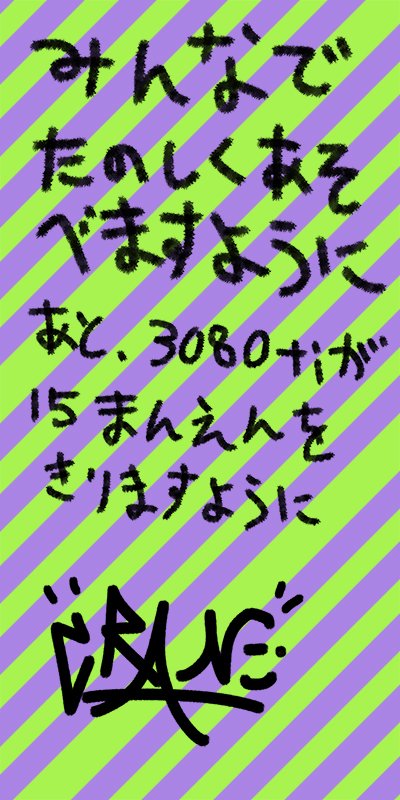 みんなで
たのしくあそ
べますように
あと、3080tiが
15まんえんを
きりますように
CRANE